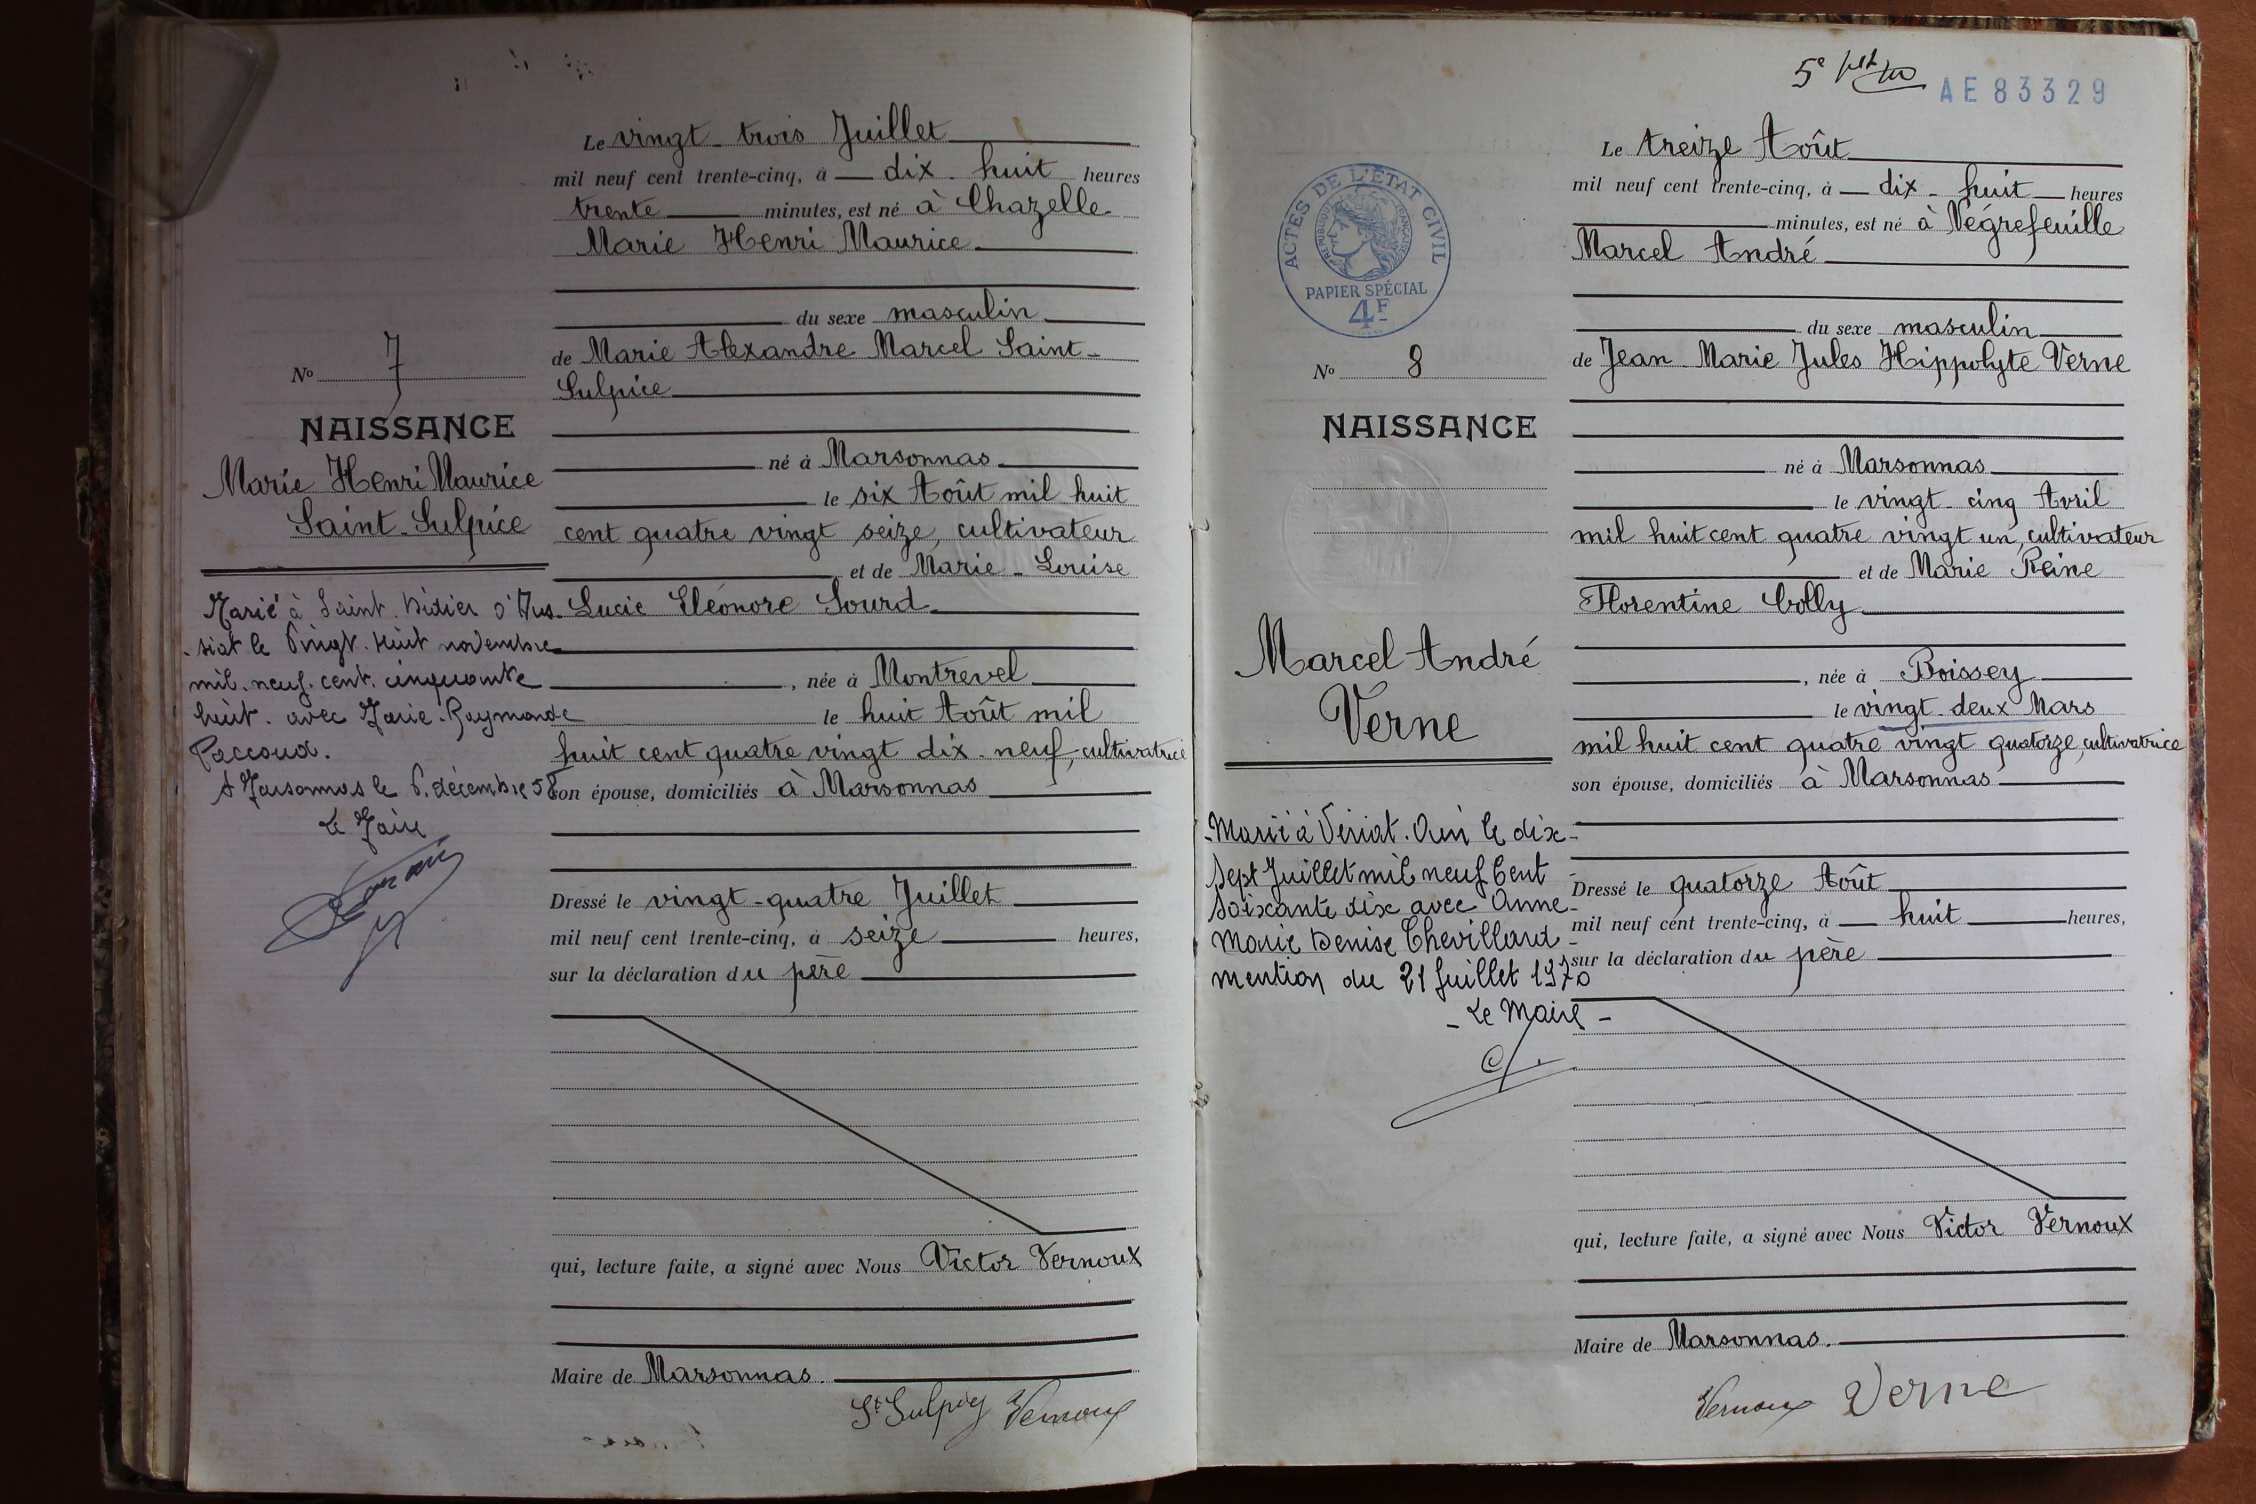 Le vingt-trois Juillet
mil neuf cent trente-cinq, à dix-huit heures
trente minutes, est né à Chazelle
Marie Henri Maurice
du sexe masculin
de Marie Alexandre Marcel Saint-
Sulpice
né à Marsonnas
le six Août mil huit
cent quatre vingt seize, cultivateur
et de Marie-Louise
Lucie Eléonore Sourd
, née à Montrevel
le huit Août mil
huit cent quatre vingt dix-neuf, cultivatrice
son épouse, domiciliés à Marsonnas
Dressé le vingt-quatre Juillet
mil neuf cent trente-cinq, à seize heures,
sur la déclaration du père
qui, lecture faite, a signé avec Nous Victor Vernoux
Maire de Marsonnas.
St Sulpice Vernoux
No 7
NAISSANCE
Marie Henri Maurice
Saint-Sulpice
Marié à Saint-Didier d'Aus-
-siat le Vingt-huit novembre
mil-neuf-cent-cinquante
huit. avec Marie-Raymonde
Paccoud.
A Marsonnas le 6 décembre 58
Le Maire
5e
AE83329
ACTES DE L'ÉTAT CIVIL
RÉPUBLIQUE FRANÇAISE
PAPIER SPÉCIAL
4F
No 8
NAISSANCE
Marcel André
Verne
-Marié à Viriat. Ain le dix-
sept Juillet mil neuf Cent
soixante dix avec Anne-
Marie Denise Chevillard-
mention du 21 Juillet 1970
- Le Maire -
Le treize Août
mil neuf cent trente-cinq, à dix-huit heures
minutes, est né à Négrefeuille
Marcel André
du sexe masculin
de Jean Marie Jules Hippolyte Verne
né à Marsonnas
le vingt-cinq Avril
mil huit cent quatre vingt un, cultivateur
et de Marie Reine
Florentine Colly
, née à Boissey
le vingt-deux Mars
mil huit cent quatre vingt quatorze, cultivatrice
son épouse, domiciliés à Marsonnas
Dressé le quatorze Août
mil neuf cent trente-cinq, à huit heures,
sur la déclaration du père
qui, lecture faite, a signé avec Nous Victor Vernoux
Maire de Marsonnas.
Vernoux Verne